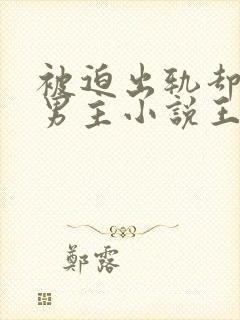 被迫出轨却
男主小說王
鄭露